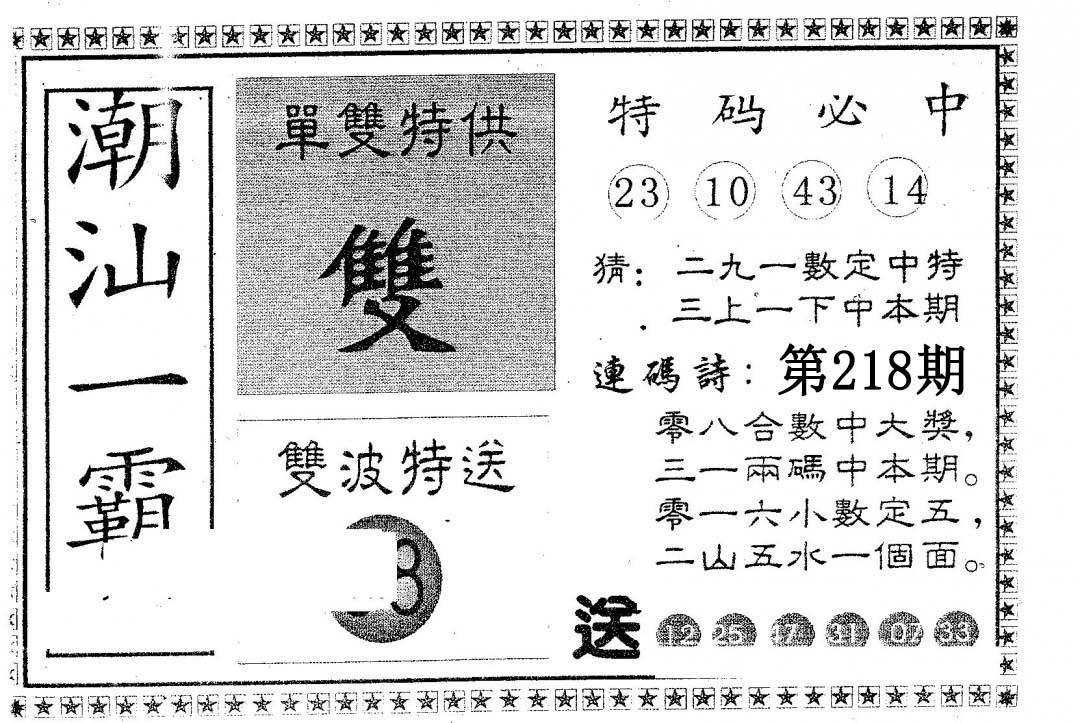 潮汕一霸
單雙特供
雙
雙波特送
特码必中
23 10 43 14
猜：二九一數定中特
三上一下中本期
連碼詩：第218期
零八合數中大獎，
三一兩碼中本期。
零一六小數定五，
二山五水一個面。
送 12 25 47 31 07 33